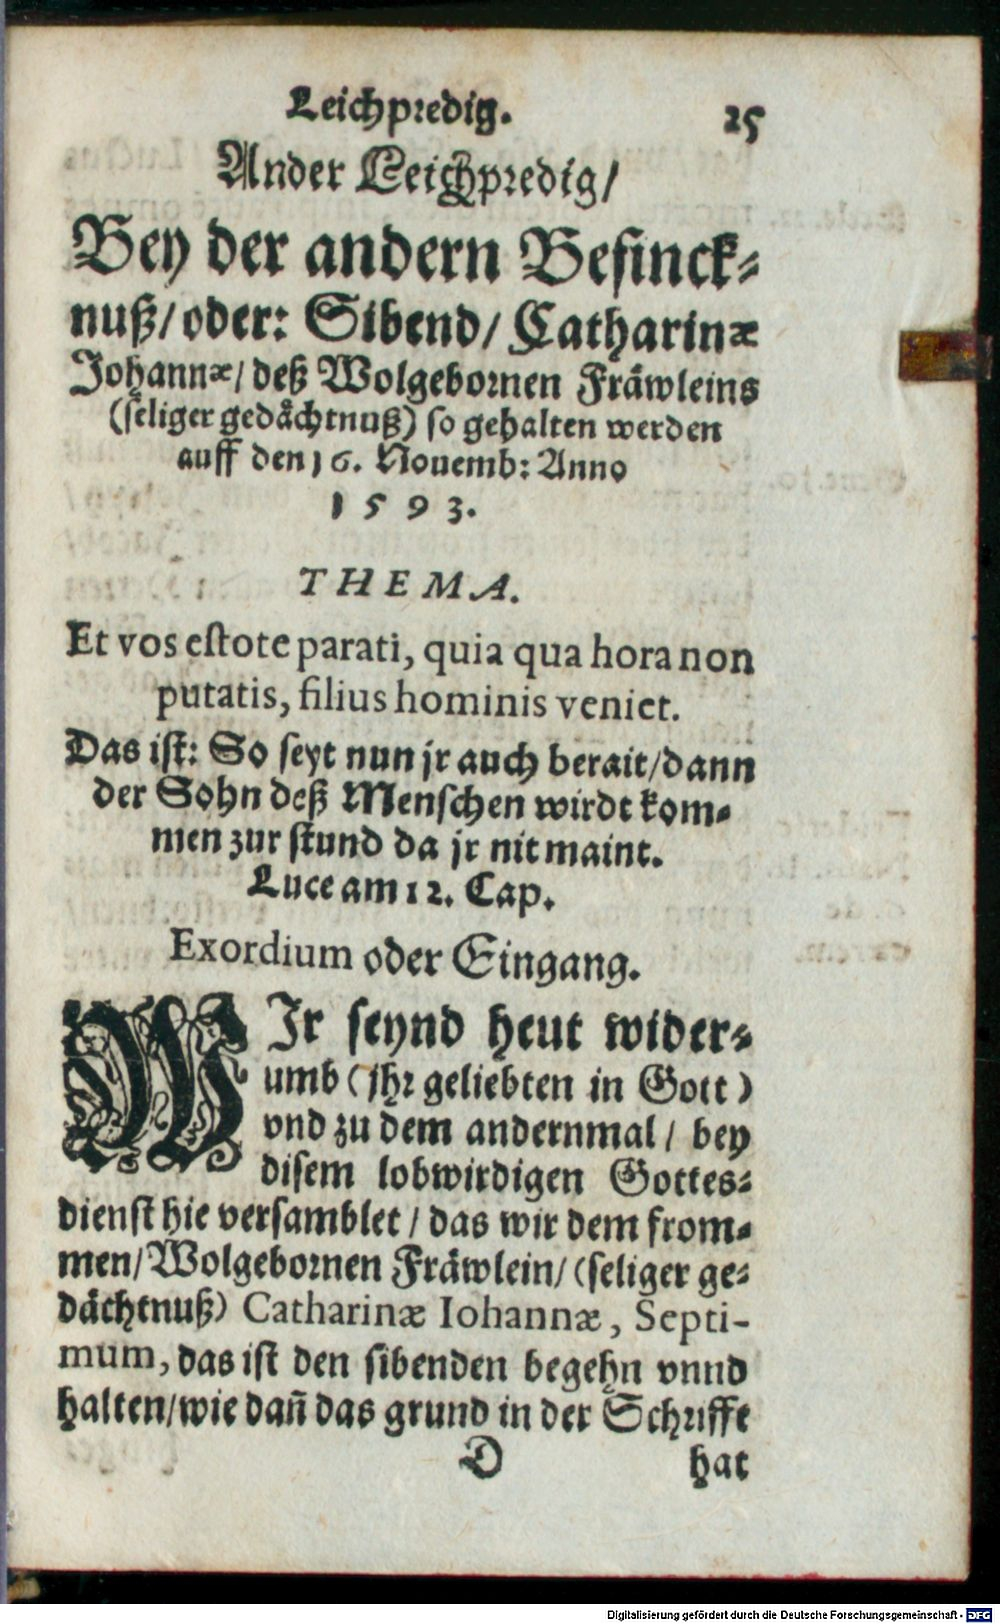 Leichpredig. 25
Ander Leichpredig/
Bey der andern Besinck-
nuß/ oder: Sibend/ Catharinæ
Johannæ/ deß Wolgebornen Fräwleins
(seliger gedåchtnuß) so gehalten werden
auff den 16. Nouemb: Anno
1593.
THEMA.
Et vos estote parati, quia qua hora non
putatis, filius hominis veniet.
Das ist: So seyt nun jr auch berait/dann
der Sohn deß Menschen wirdt kom-
men zur stund da jr nit maint.
Luce am 12. Cap.
Exordium oder Eingang.
WIr seynd heut wider-
umb (jhr geliebten in Gott)
vnd zu dem andernmal/ bey
disem lobwirdigen Gottes-
dienst hie versamblet/ das wir dem from-
men/Wolgebornen Fräwlein/ (seliger ge-
dächtnuß) Catharinæ Iohannæ, Septi-
mum, das ist den sibenden begehn vnnd
halten/wie dañ das grund in der Schrifft
D hat
Digitalisierung gefördert durch die Deutsche Forschungsgemeinschaft - DFG